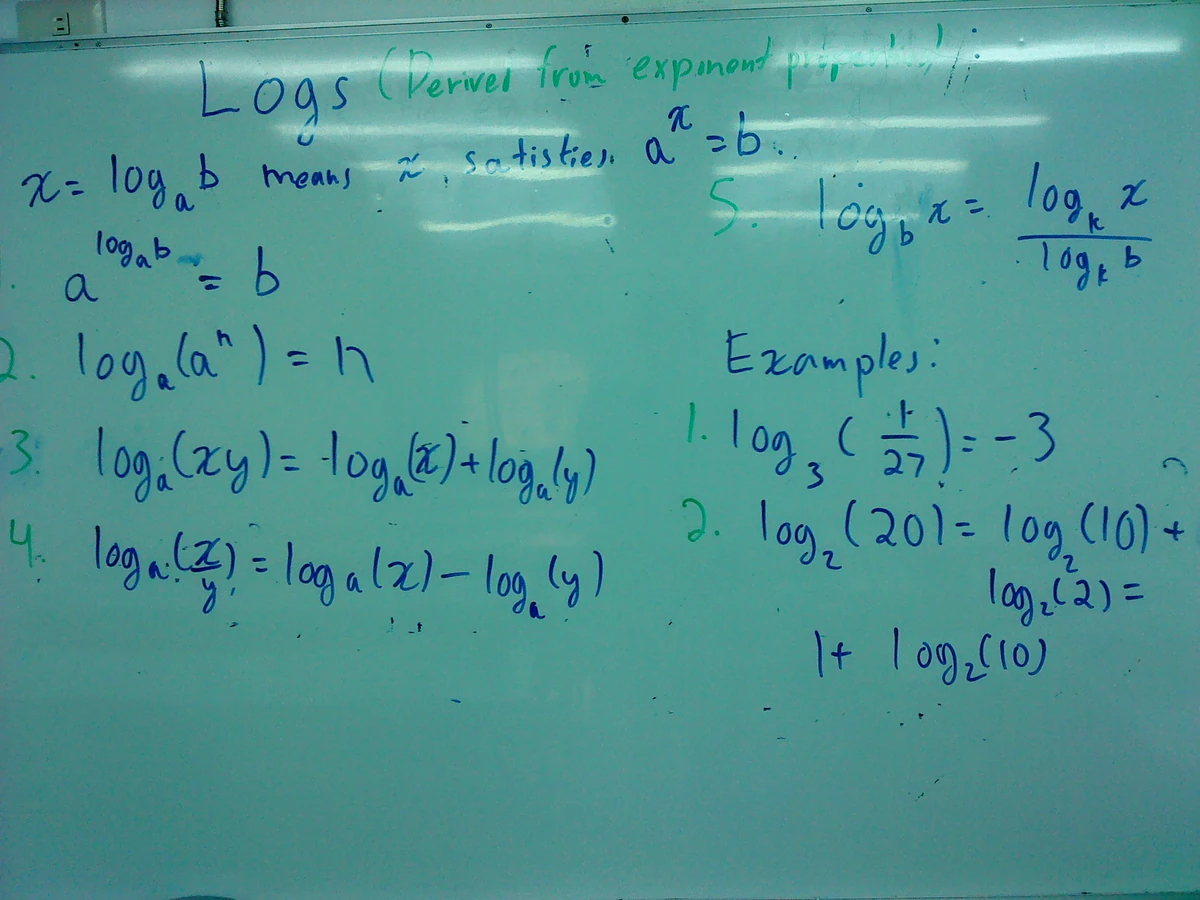 Logs (Derived from exponent properties):
x = logₐb means x satisfies aˣ = b.
a^(logₐb) = b
2. logₐ(aⁿ) = n
3. logₐ(xy) = logₐ(x) + logₐ(y)
4. logₐ(x/y) = logₐ(x) − logₐ(y)
5. log_b x = log_k x / log_k b
Examples:
1. log₃(1/27) = −3
2. log₂(20) = log₂(10) +
log₂(2) =
1 + log₂(10)